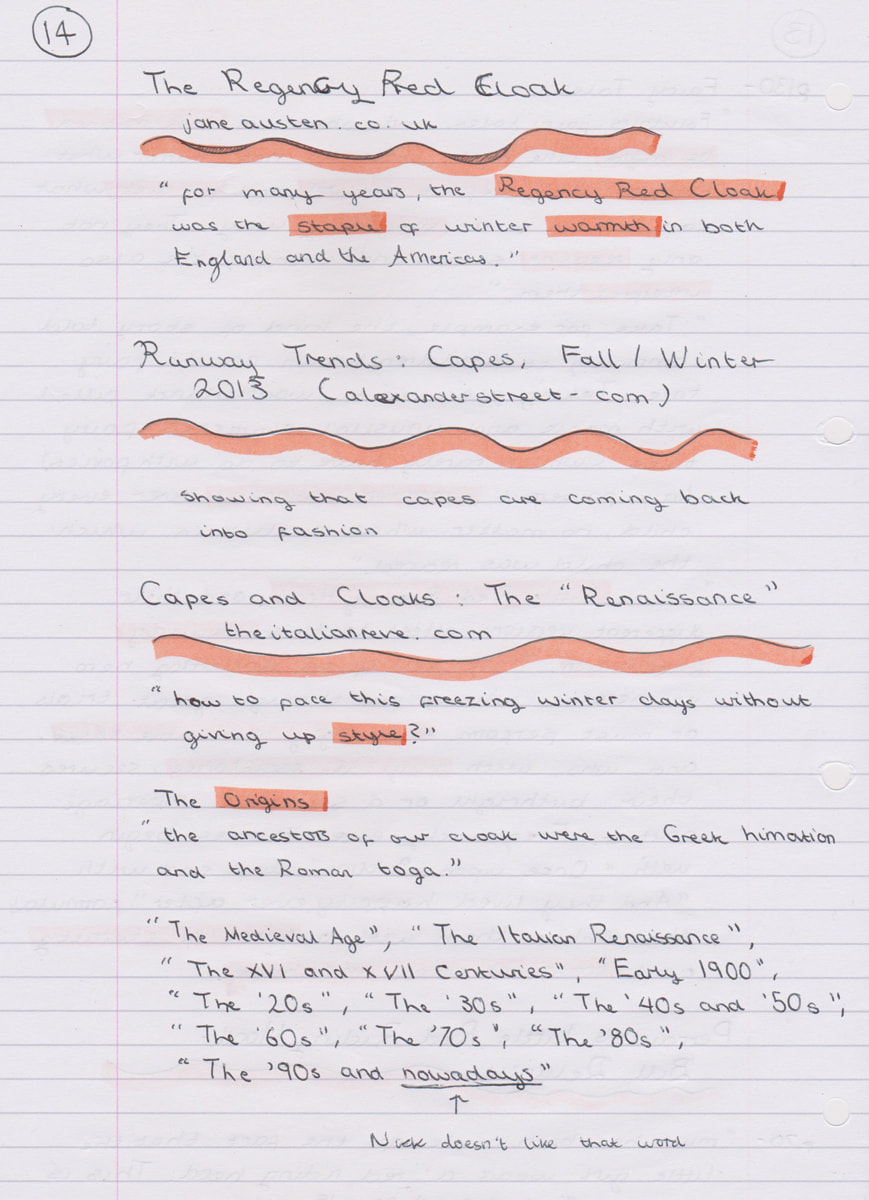 14
The Regency Red Cloak
jane austen.co.uk
"for many years, the Regency Red Cloak
was the staple of winter warmth in both
England and the Americas."
Runway Trends: Capes, Fall / Winter
2013 (alexanderstreet-com)
showing that capes are coming back
into fashion
Capes and Cloaks: The "Renaissance"
theitalianreve.com
"how to face this freezing winter days without
giving up style?"
The Origins
"the ancestors of our cloak were the Greek himation
and the Roman toga."
"The Medieval Age", "The Italian Renaissance",
"The XVI and XVII Centuries", "Early 1900",
"The '20s", "The '30s", "The '40s and '50s",
"The '60s", "The '70s", "The '80s",
"The '90s and nowadays"
↑
Nick doesn't like that word